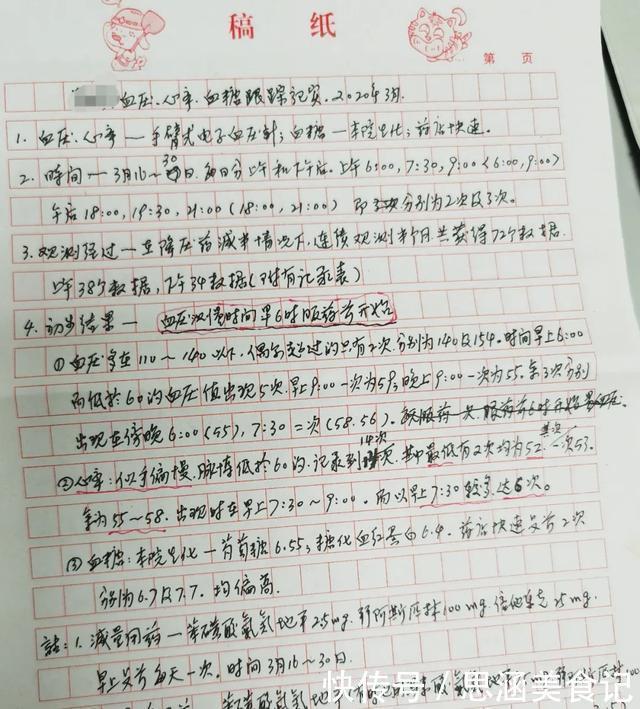 稿 纸
第 页
血压、心率、血糖跟踪记实. 2020年3月.
1. 血压、心率 — 手臂式电子血压计; 血糖 — 本院生化; 药店快速。
2. 时间 — 3月16~30日. 每日分上午和下午后. 上午6:00, 7:30, 9:00 (6:00, 9:00)
午后18:00, 19:30, 21:00 (18:00, 21:00) 即 分别为2次及3次。
3. 观测经过 — 在降压药减半情况下, 连续观测半个月共获得72个数据.
上午38个数据, 下午34数据 (附有记录表)
4. 初步结果 — 血压测量时间早6时服药前开始
① 血压多在110~140以下, 偶尔超过的只有2次. 分别为140及154. 时间早上6:00
而低於60的血压值出现5次. 早上9:00一次为59, 晚上9:00一次为55. 余3次分别
出现在傍晚6:00 (55), 7:30 = 次 (58.56).
② 心率: 似乎偏慢, 脉搏低於60的, 记录到14次, 其中最低有2次均为52. 其次一次53.
余为55~58. 出现时在早上7:30~9:00. 而以早上7:30较多达6次。
③ 血糖: 本院生化 — 葡萄糖6.55, 糖化血红蛋白6.4. 药店快速早前2次
分别为6.7及7.7. 均偏高.
註: 1. 减量用药 — 苯磺酸氨氯地平25mg. 阿斯匹林100mg. 倍他乐克25mg.
早上早前每天一次. 时间3月16~30日.
快传号 / 思涵美食记